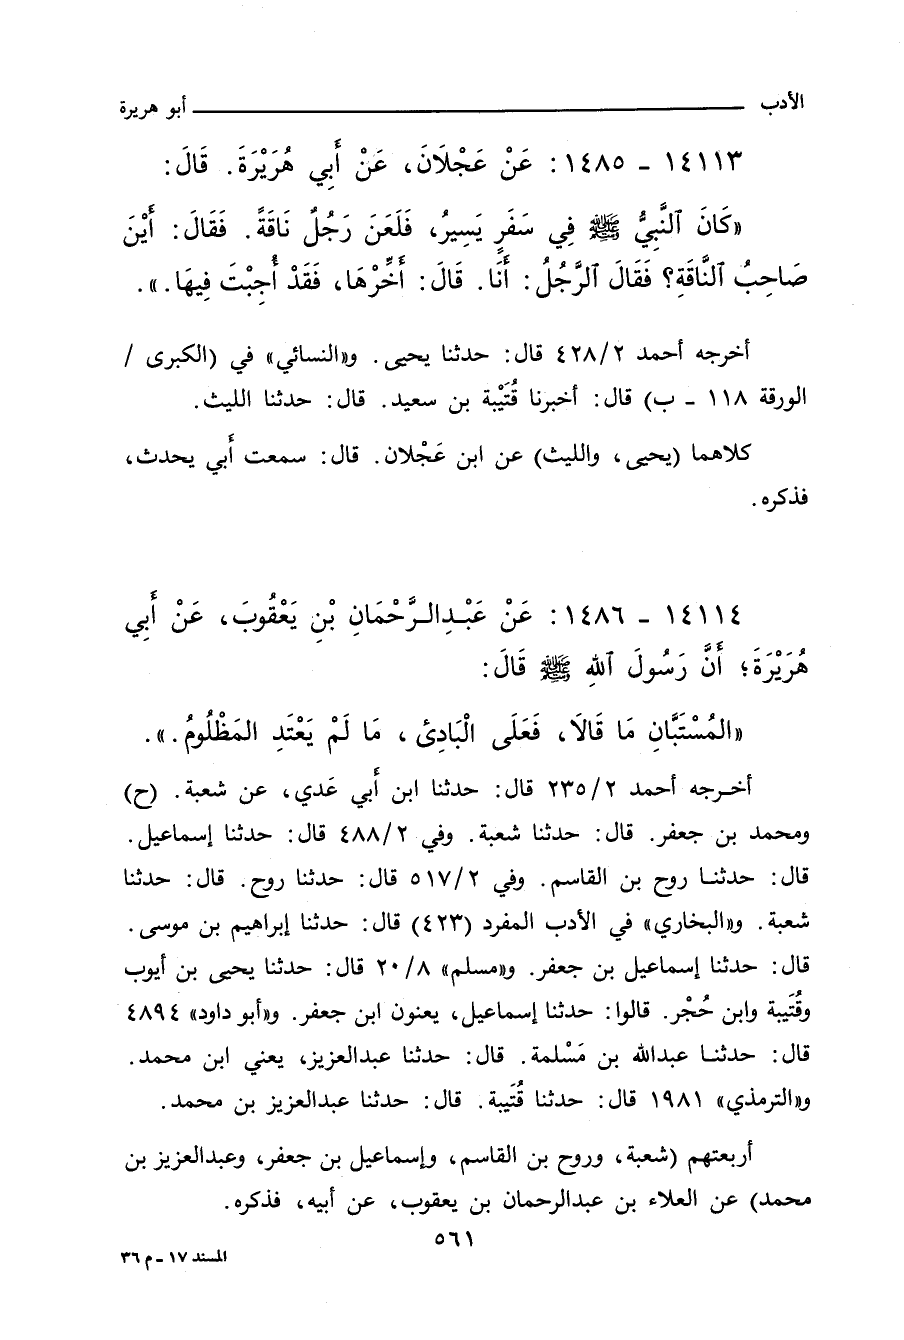 الأدب ــــــــــ أبو هريرة
١٤١١٣ - ١٤٨٥ : عَنْ عَجْلَانَ، عَنْ أَبِي هُرَيْرَةَ. قَالَ:
«كَانَ ٱلنَّبِيُّ ﷺ فِي سَفَرٍ يَسِيرُ، فَلَعَنَ رَجُلٌ نَاقَةً. فَقَالَ: أَيْنَ
صَاحِبُ ٱلنَّاقَةِ؟ فَقَالَ ٱلرَّجُلُ: أَنَا. قَالَ: أَخِّرْهَا، فَقَدْ أُجِبْتَ فِيهَا.».
أخرجه أحمد ٤٢٨/٢ قال: حدثنا يحيى. و«النسائي» في (الكبرى /
الورقة ١١٨ - ب) قال: أخبرنا قُتَيْبة بن سعيد. قال: حدثنا الليث.
كلاهما (يحيى، والليث) عن ابن عَجْلان. قال: سمعت أَبي يحدث،
فذكره.
١٤١١٤ - ١٤٨٦ : عَنْ عَبْدِالرَّحْمَانِ بْنِ يَعْقُوبَ، عَنْ أَبِي
هُرَيْرَةَ؛ أَنَّ رَسُولَ ٱللهِ ﷺ قَالَ:
«المُسْتَبَّانِ مَا قَالَا، فَعَلَى الْبَادِئ، مَا لَمْ يَعْتَدِ المَظْلُومُ.».
أخرجه أحمد ٢٣٥/٢ قال: حدثنا ابن أَبي عَدي، عن شعبة. (ح)
ومحمد بن جعفر. قال: حدثنا شعبة. وفي ٤٨٨/٢ قال: حدثنا إسماعيل.
قال: حدثنا روح بن القاسم. وفي ٥١٧/٢ قال: حدثنا روح. قال: حدثنا
شعبة. و«البخاري» في الأدب المفرد (٤٢٣) قال: حدثنا إبراهيم بن موسى.
قال: حدثنا إسماعيل بن جعفر. و«مسلم» ٢٠/٨ قال: حدثنا يحيى بن أيوب
وقُتَيبة وابن حُجْر. قالوا: حدثنا إسماعيل، يعنون ابن جعفر. و«أبو داود» ٤٨٩٤
قال: حدثنا عبدالله بن مَسْلمة. قال: حدثنا عبدالعزيز، يعني ابن محمد.
و«الترمذي» ١٩٨١ قال: حدثنا قُتَيبة. قال: حدثنا عبدالعزيز بن محمد.
أربعتهم (شعبة، وروح بن القاسم، وإسماعيل بن جعفر، وعبدالعزيز بن
محمد) عن العلاء بن عبدالرحمان بن يعقوب، عن أبيه، فذكره.
٥٦١
المسند ١٧ - م ٣٦